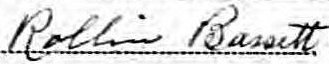 Rollin Bassett